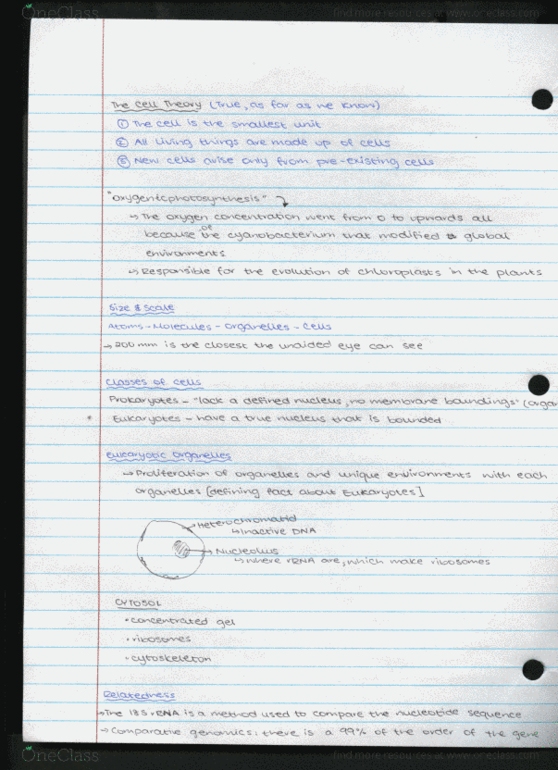 OneClass
find more resources at www.oneclass.com
The Cell Theory (True, as far as we know)
① The cell is the smallest unit
② All living things are made up of cells
③ New cells arise only from pre-existing cells
"oxygenicphotosynthesis"
→ The oxygen concentration went from 0 to upwards all
because of the cyanobacterium that modified global
environments
↳ Responsible for the evolution of chloroplasts in the plants
Size & scale
Atoms - Molecules - Organelles - Cells
→ 200 mm is the closest the unaided eye can see
Classes of cells
Prokaryotes - "lack a defined nucleus, no membrane boundings" (organ
* Eukaryotes - have a true nucleus that is bounded
Eukaryotic Organelles
→ Proliferation of organelles and unique environments with each
organelles [defining fact about Eukaryotes]
→ Heterochromatid
↳ Inactive DNA
→ Nucleolus
↳ where rRNA are, which make ribosomes
CYTOSOL
• concentrated gel
• ribosomes
• cytoskeleton
Relatedness
→ The 18S rRNA is a method used to compare the nucleotide sequence
→ Comparative genomics: there is a 99% of the order of the gene
OneClass
find more resources at www.oneclass.com